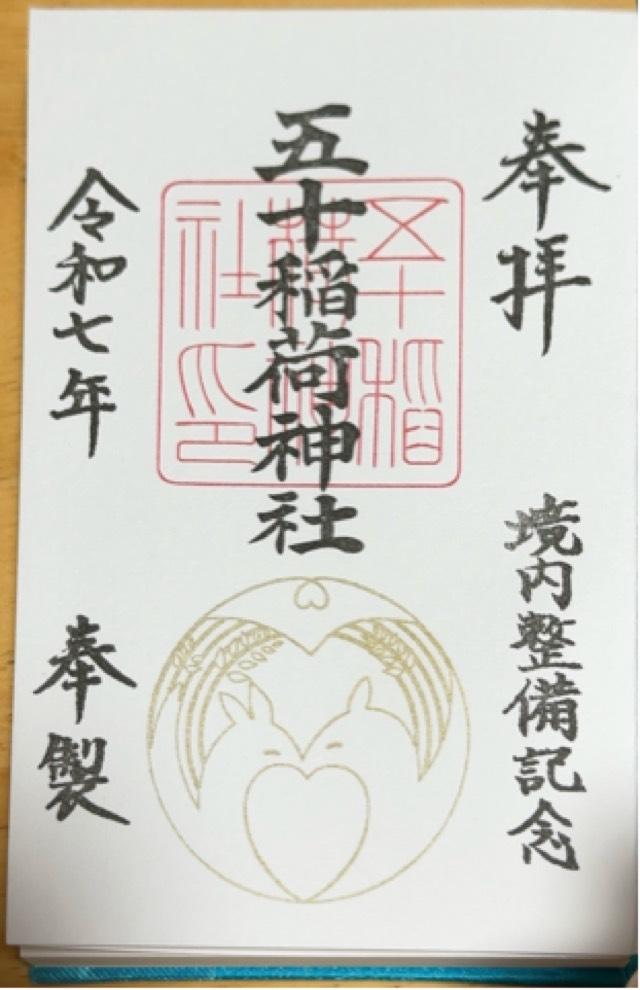 奉拝
境内整備記念
五十稲荷神社
五十稲荷神社印
令和七年
奉製